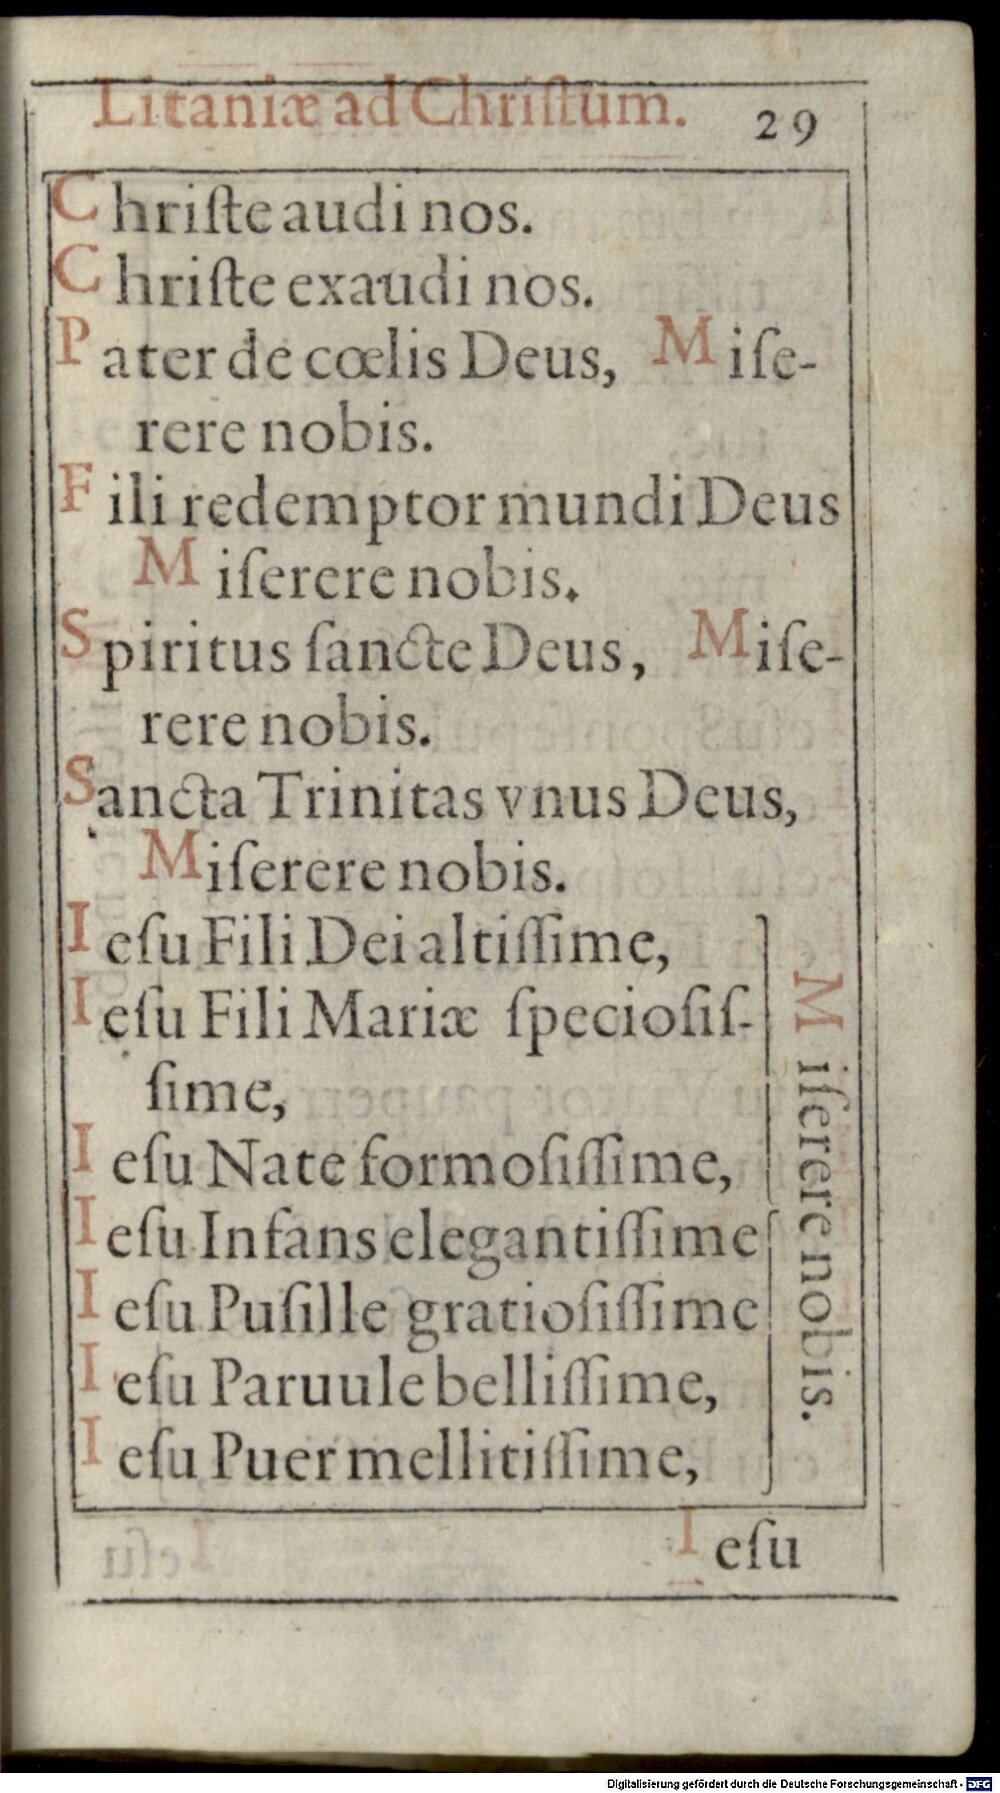 Litaniæ ad Chriſtum. 29
Chriſte audi nos.
Chriſte exaudi nos.
Pater de cœlis Deus, Miſe-
rere nobis.
Fili redemptor mundi Deus
Miſerere nobis.
Spiritus ſancte Deus, Miſe-
rere nobis.
Sancta Trinitas vnus Deus,
Miſerere nobis.
Ieſu Fili Dei altiſſime,
Ieſu Fili Mariæ ſpecioſiſ-
ſime,
Ieſu Nate formoſiſſime,
Ieſu Infans elegantiſſime
Ieſu Puſille gratioſiſſime
Ieſu Paruule belliſſime,
Ieſu Puer mellitiſſime,
Miſerere nobis.
Ieſu
Digitalisierung gefördert durch die Deutsche Forschungsgemeinschaft - DFG